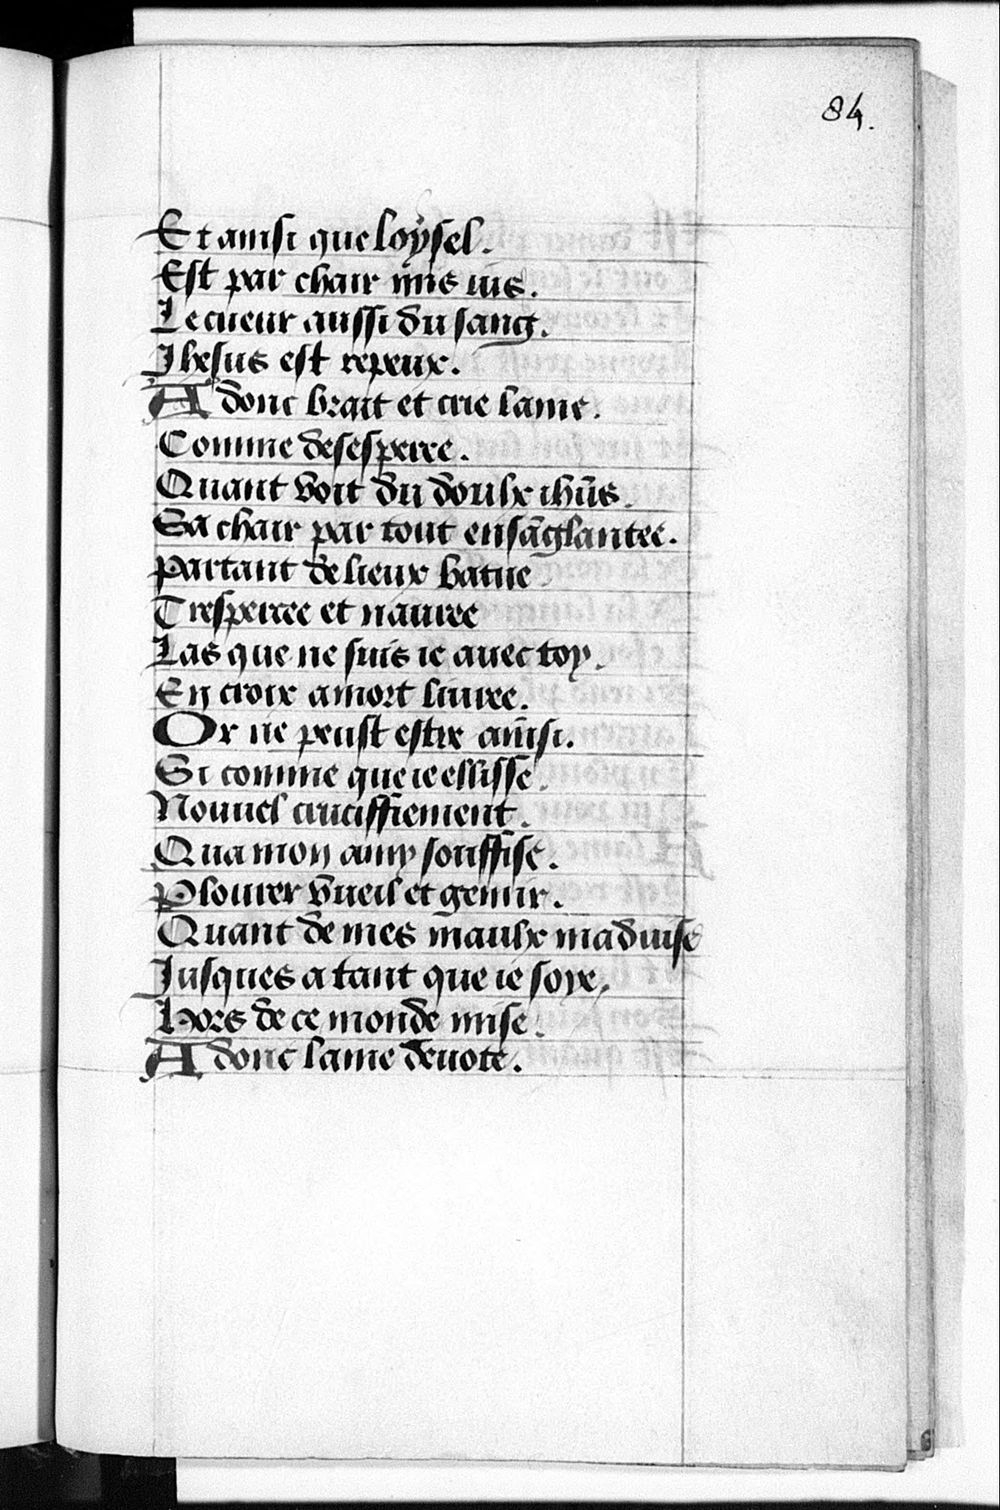 84.
Et ainsi que loysel.
Est par chair mis ius.
Le cueur aussi du sang.
Ihesus est repeux.
A donc brait et crie lame.
Comme desesperee.
Quant voit du doulx ihũs.
Sa chair par tout ensãglantee.
Partant de lieux batue
Trespercee et nauree
Las que ne suis ie auec toy.
En croix a mort liuree.
Or ne peust estre ainsi.
Si comme que ie eslisse.
Nouuel cruciffiement.
Qua mon amy souffise.
Plourer vueil et gemir.
Quant de mes maulx maduise
Iusques a tant que ie soye.
Hors de ce monde mise.
A donc lame deuote.